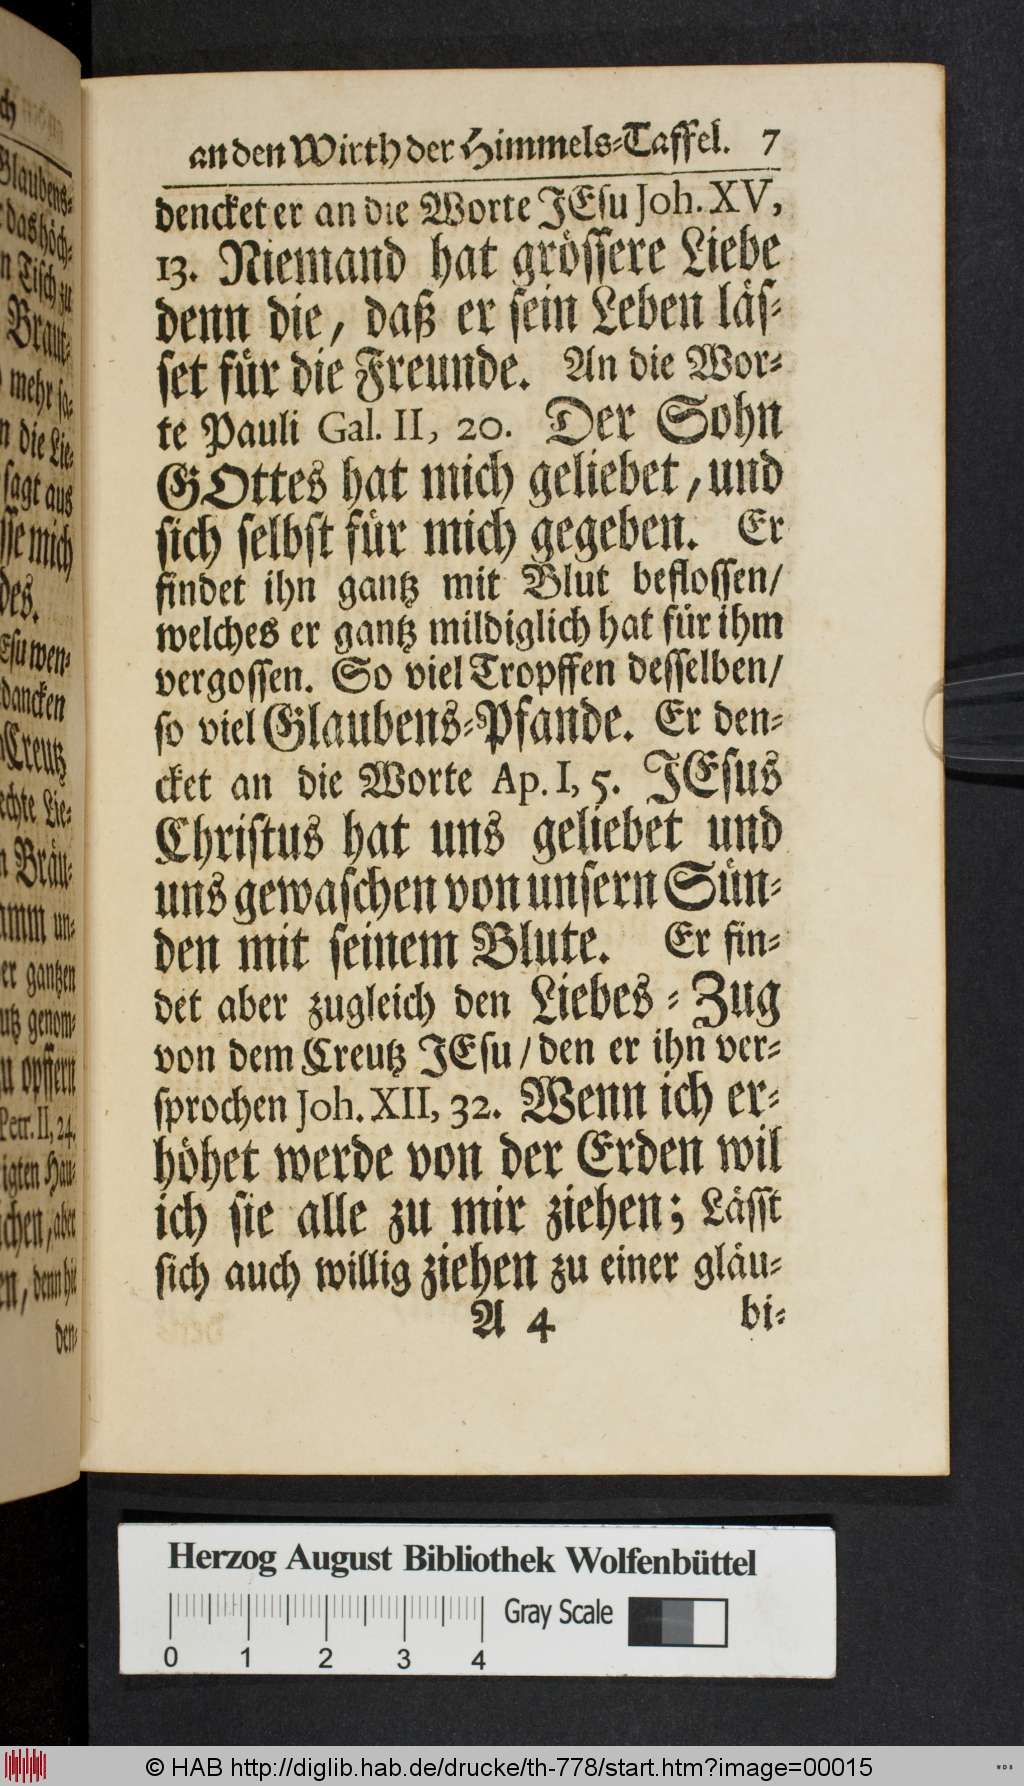 an den Wirth der Himmels-Taffel. 7
dencket er an die Worte JEsu Joh. XV,
13. Niemand hat grössere Liebe
denn die, daß er sein Leben läs-
set für die Freunde. An die Wor-
te Pauli Gal. II, 20. Der Sohn
GOttes hat mich geliebet, und
sich selbst für mich gegeben. Er
findet ihn gantz mit Blut beflossen/
welches er gantz mildiglich hat für ihm
vergossen. So viel Tropffen desselben/
so viel Glaubens-Pfande. Er den-
cket an die Worte Ap. I, 5. JEsus
Christus hat uns geliebet und
uns gewaschen von unsern Sün-
den mit seinem Blute. Er fin-
det aber zugleich den Liebes-Zug
von dem Creutz JEsu/ den er ihn ver-
sprochen Joh. XII, 32. Wenn ich er-
höhet werde von der Erden wil
ich sie alle zu mir ziehen; Lässt
sich auch willig ziehen zu einer gläu-
A 4 bi-
Glaubens-
das höch-
Tisch zu
Braut-
mehr
die Lie-
sagt aus
mich
des.
JEsu wen-
dancken
Creutz
Lie-
Bräu-
un-
er gantzen
genom-
opffern
Petr. II, 24.
aber
den-
Herzog August Bibliothek Wolfenbüttel
Gray Scale
0 1 2 3 4
© HAB http://diglib.hab.de/drucke/th-778/start.htm?image=00015